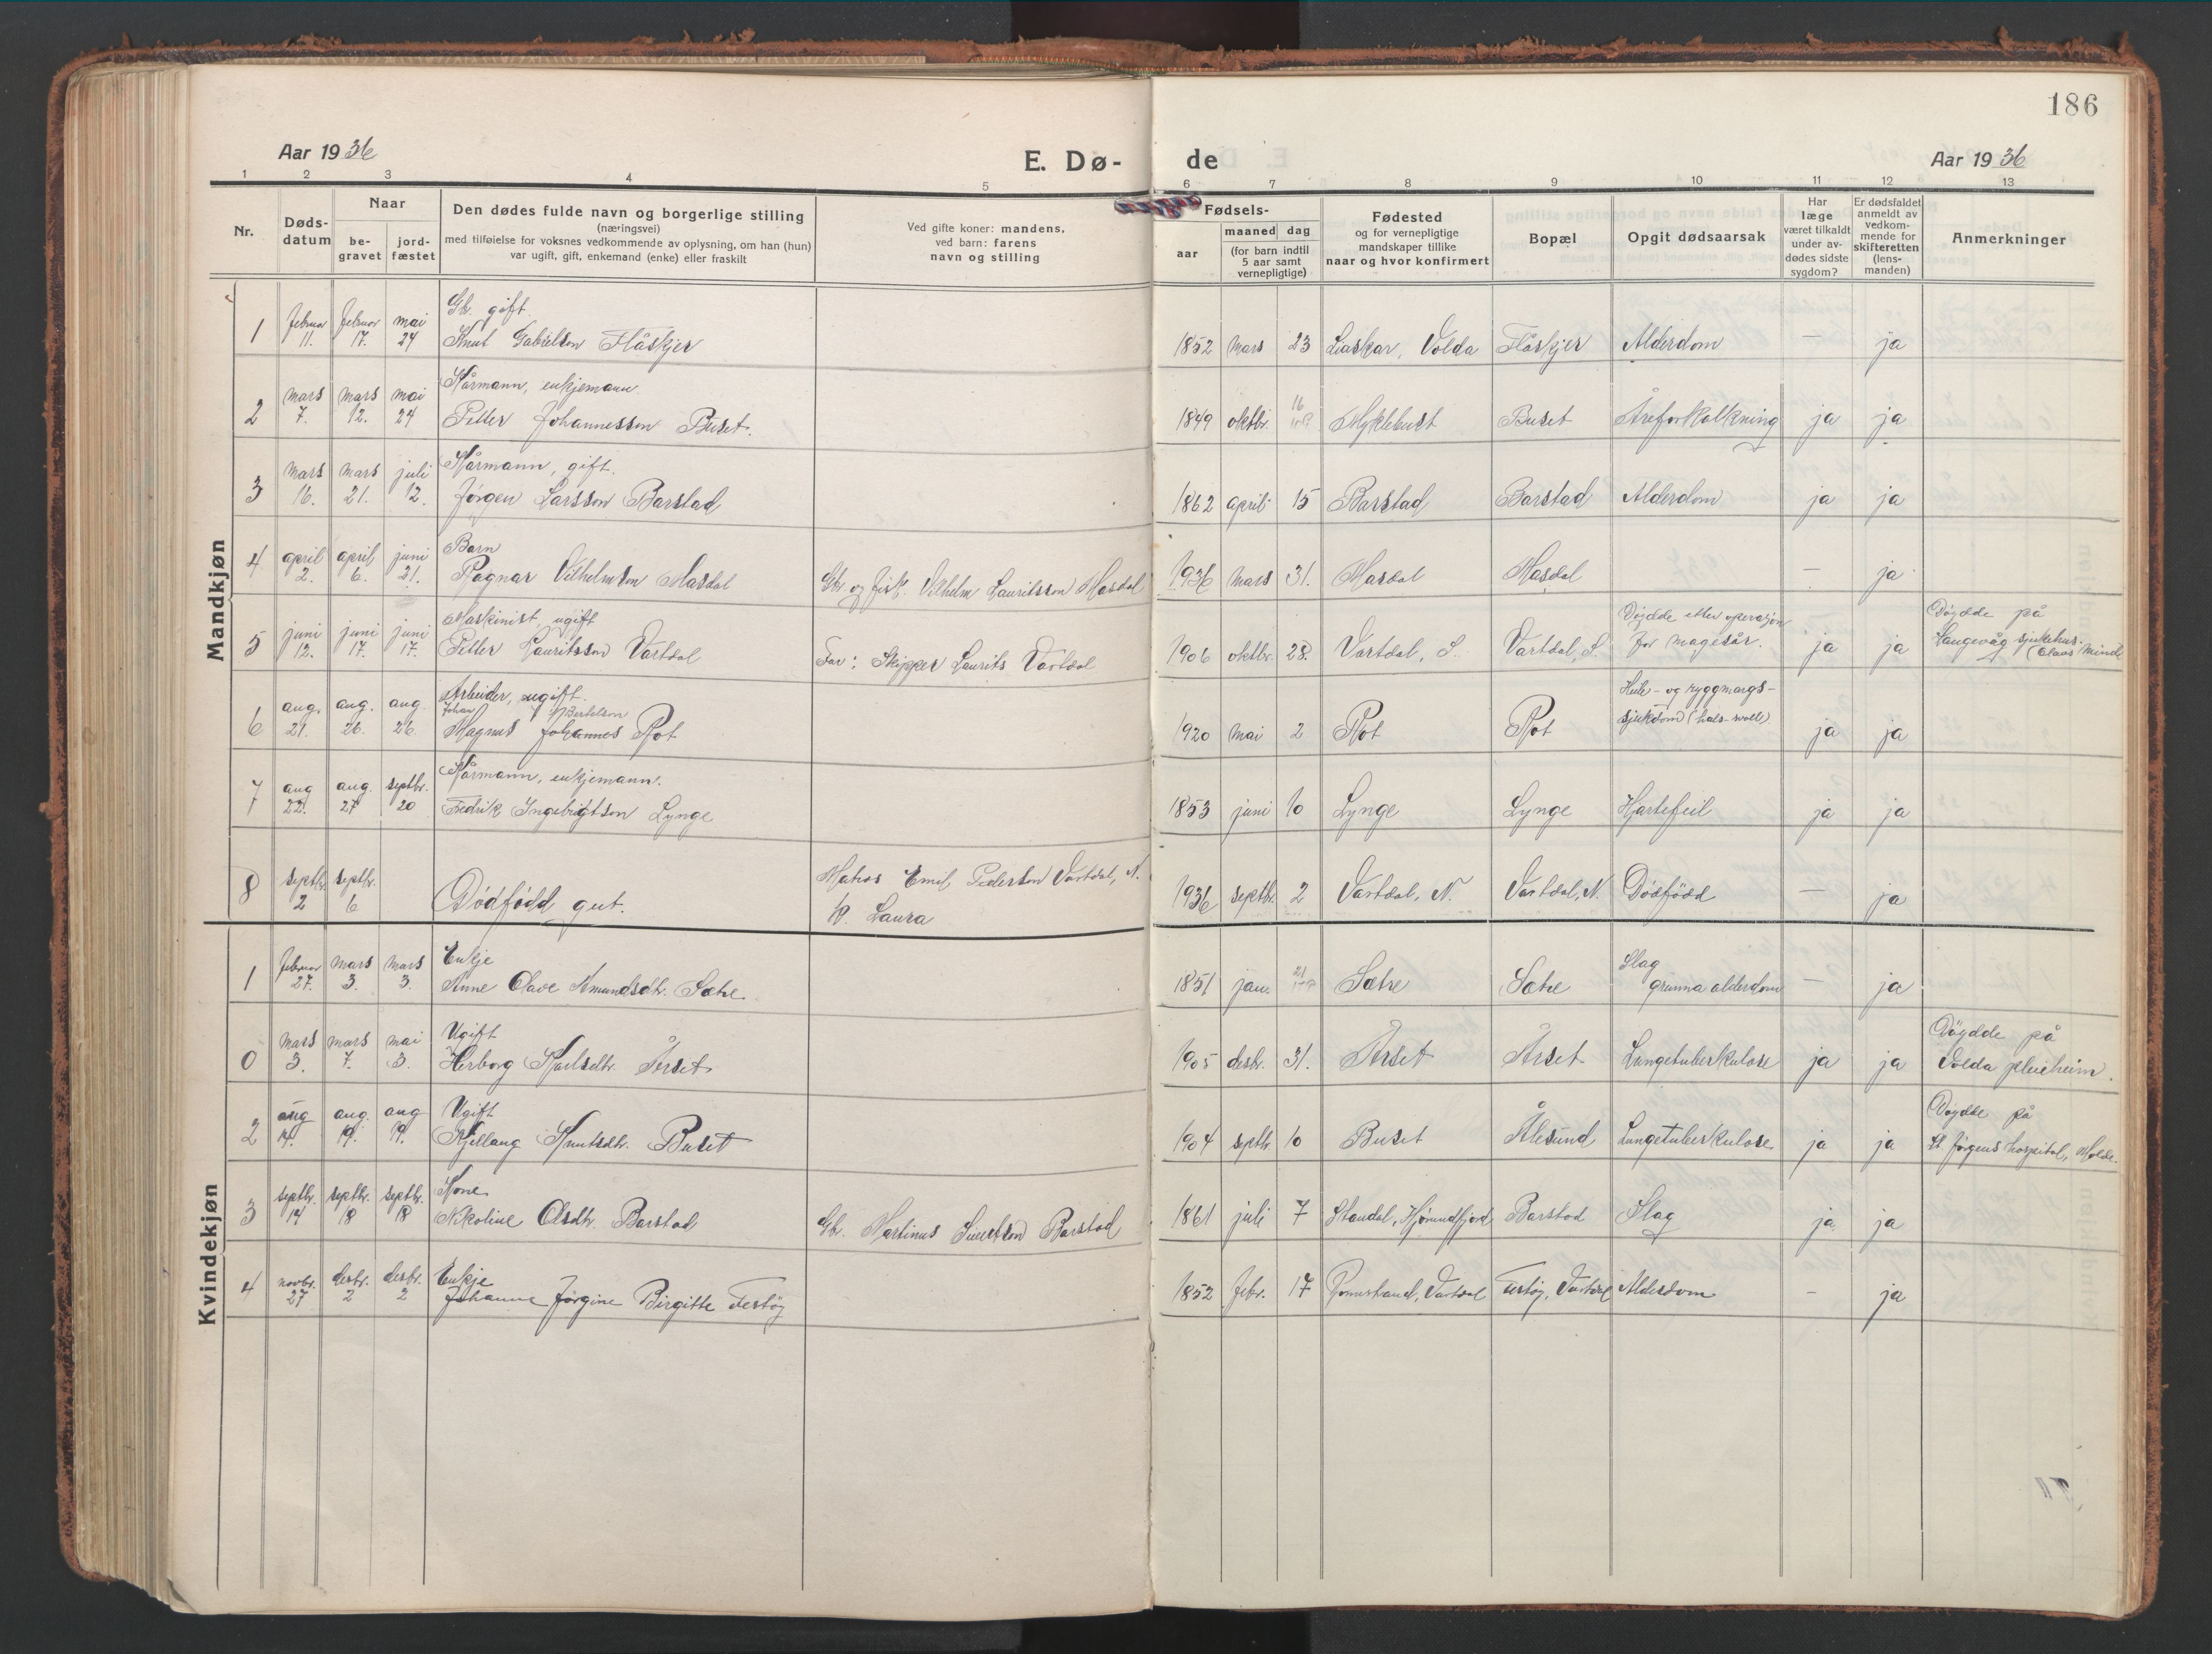 186
Aar 1936
E. Dø-
de
Aar 1936
1 2 3 4 5 6 7 8 9 10 11 12 13
Nr.
Døds-
datum
Naar
be-
gravet
jord-
fæstet
Den dødes fulde navn og borgerlige stilling
(næringsvei)
med tilføielse for voksnes vedkommende av oplysning, om han (hun)
var ugift, gift, enkemand (enke) eller fraskilt
Ved gifte koner: mandens,
ved barn: farens
navn og stilling
Fødsels-
aar
maaned dag
(for barn indtil
5 aar samt
vernepligtige)
Fødested
og for vernepligtige
mandskaper tillike
naar og hvor konfirmert
Bopæl
Opgit dødsaarsak
Har
læge
været tilkaldt
under av-
dødes sidste
sygdom?
Er dødsfaldet
anmeldt av
vedkom-
mende for
skifteretten
(lens-
manden)
Anmerkninger
Mandkjøn
Gb. gift
1 februar 11. februar 17. mai 24 Knut Gabrielson Flåskjer 1852 mars 23 Liaskar, Volda Flåskjer Alderdom — ja
Kårmann, enkjemann
2 mars 7. mars 12. mai 24 Petter Johannesson Buset. 1849 oktbr. 16 Myklebust Buset Åreforkalkning ja ja
Kårmann, gift.
3 mars 16. mars 21. juli 12. Jørgen Larsson Barstad 1862 april 15 Barstad Barstad Alderdom ja ja
Barn
4 april 2. april 6. juni 21. Ragnar Vilhelmson Masdal Gb. og fisk. Vilhelm Lauritsson Masdal 1936 mars 31. Masdal Masdal — ja
Maskinist, ugift
5 juni 12. juni 17. juni 17. Petter Lauritsson Vartdal Far: Skipper Laurits Vartdal 1906 oktbr. 28. Vartdal, S. Vartdal, S. Döydde etter operasjon
for magesår. ja ja Döydde på
Langevåg sjukehus. (Olavs Minde
Arbeider, ugift.
Johan Bertelson
6 aug. 21. aug. 26. aug 26. Magnus Johannes Rot 1920 mai 2 Rot Rot Hule- og ryggmargs-
sjukdom ja ja
Kårmann, enkjemann.
7 aug 22. aug. 27 septbr. 20 Fredrik Ingebrigtson Lynge 1853 juni 10 Lynge Lynge Hjartefeil ja ja
8 septbr. 2 septbr. 6 Dödfödd gut. Matros Emil Pederson Vartdal, N.
K. Laura 1936 septbr. 2 Vartdal, N. Vartdal, N. Dödfödd — ja
Kvindekjøn
Enkje
1 februar 27. mars 3. mars 3. Anne Olave Amundsdtr. Sætre 1851 jan. 21 Sætre Sætre Slag
grunna alderdom — ja
Ugift
0 mars 3. mars 7. mai 3. Herborg Karlsdtr. Årset 1905 desbr. 31. Årset Årset Lungetuberkulose ja ja Döydde på
Volda pleieheim.
Ugift
2 aug 14. aug. 19. aug 19. Kjellaug Knutsdtr. Buset 1904 septbr. 10 Buset Ålesund Lungetuberkulose ja ja Döydde på
St. Jørgens hospital, Molde.
Kone
3 septbr. 14 septbr. 18 septbr. 18 Nikoline Olsdtr. Barstad Gb. Martinus Sivertson Barstad 1861 juli 7 Standal, Hjørundfjord Barstad Slag ja ja
Enkje
4 novbr. 27 desbr. 2 desbr. 2 Johanne Jørgine Birgitte Festøy 1852 febr. 17 Vartdal Festøy, Vartdal Alderdom — ja